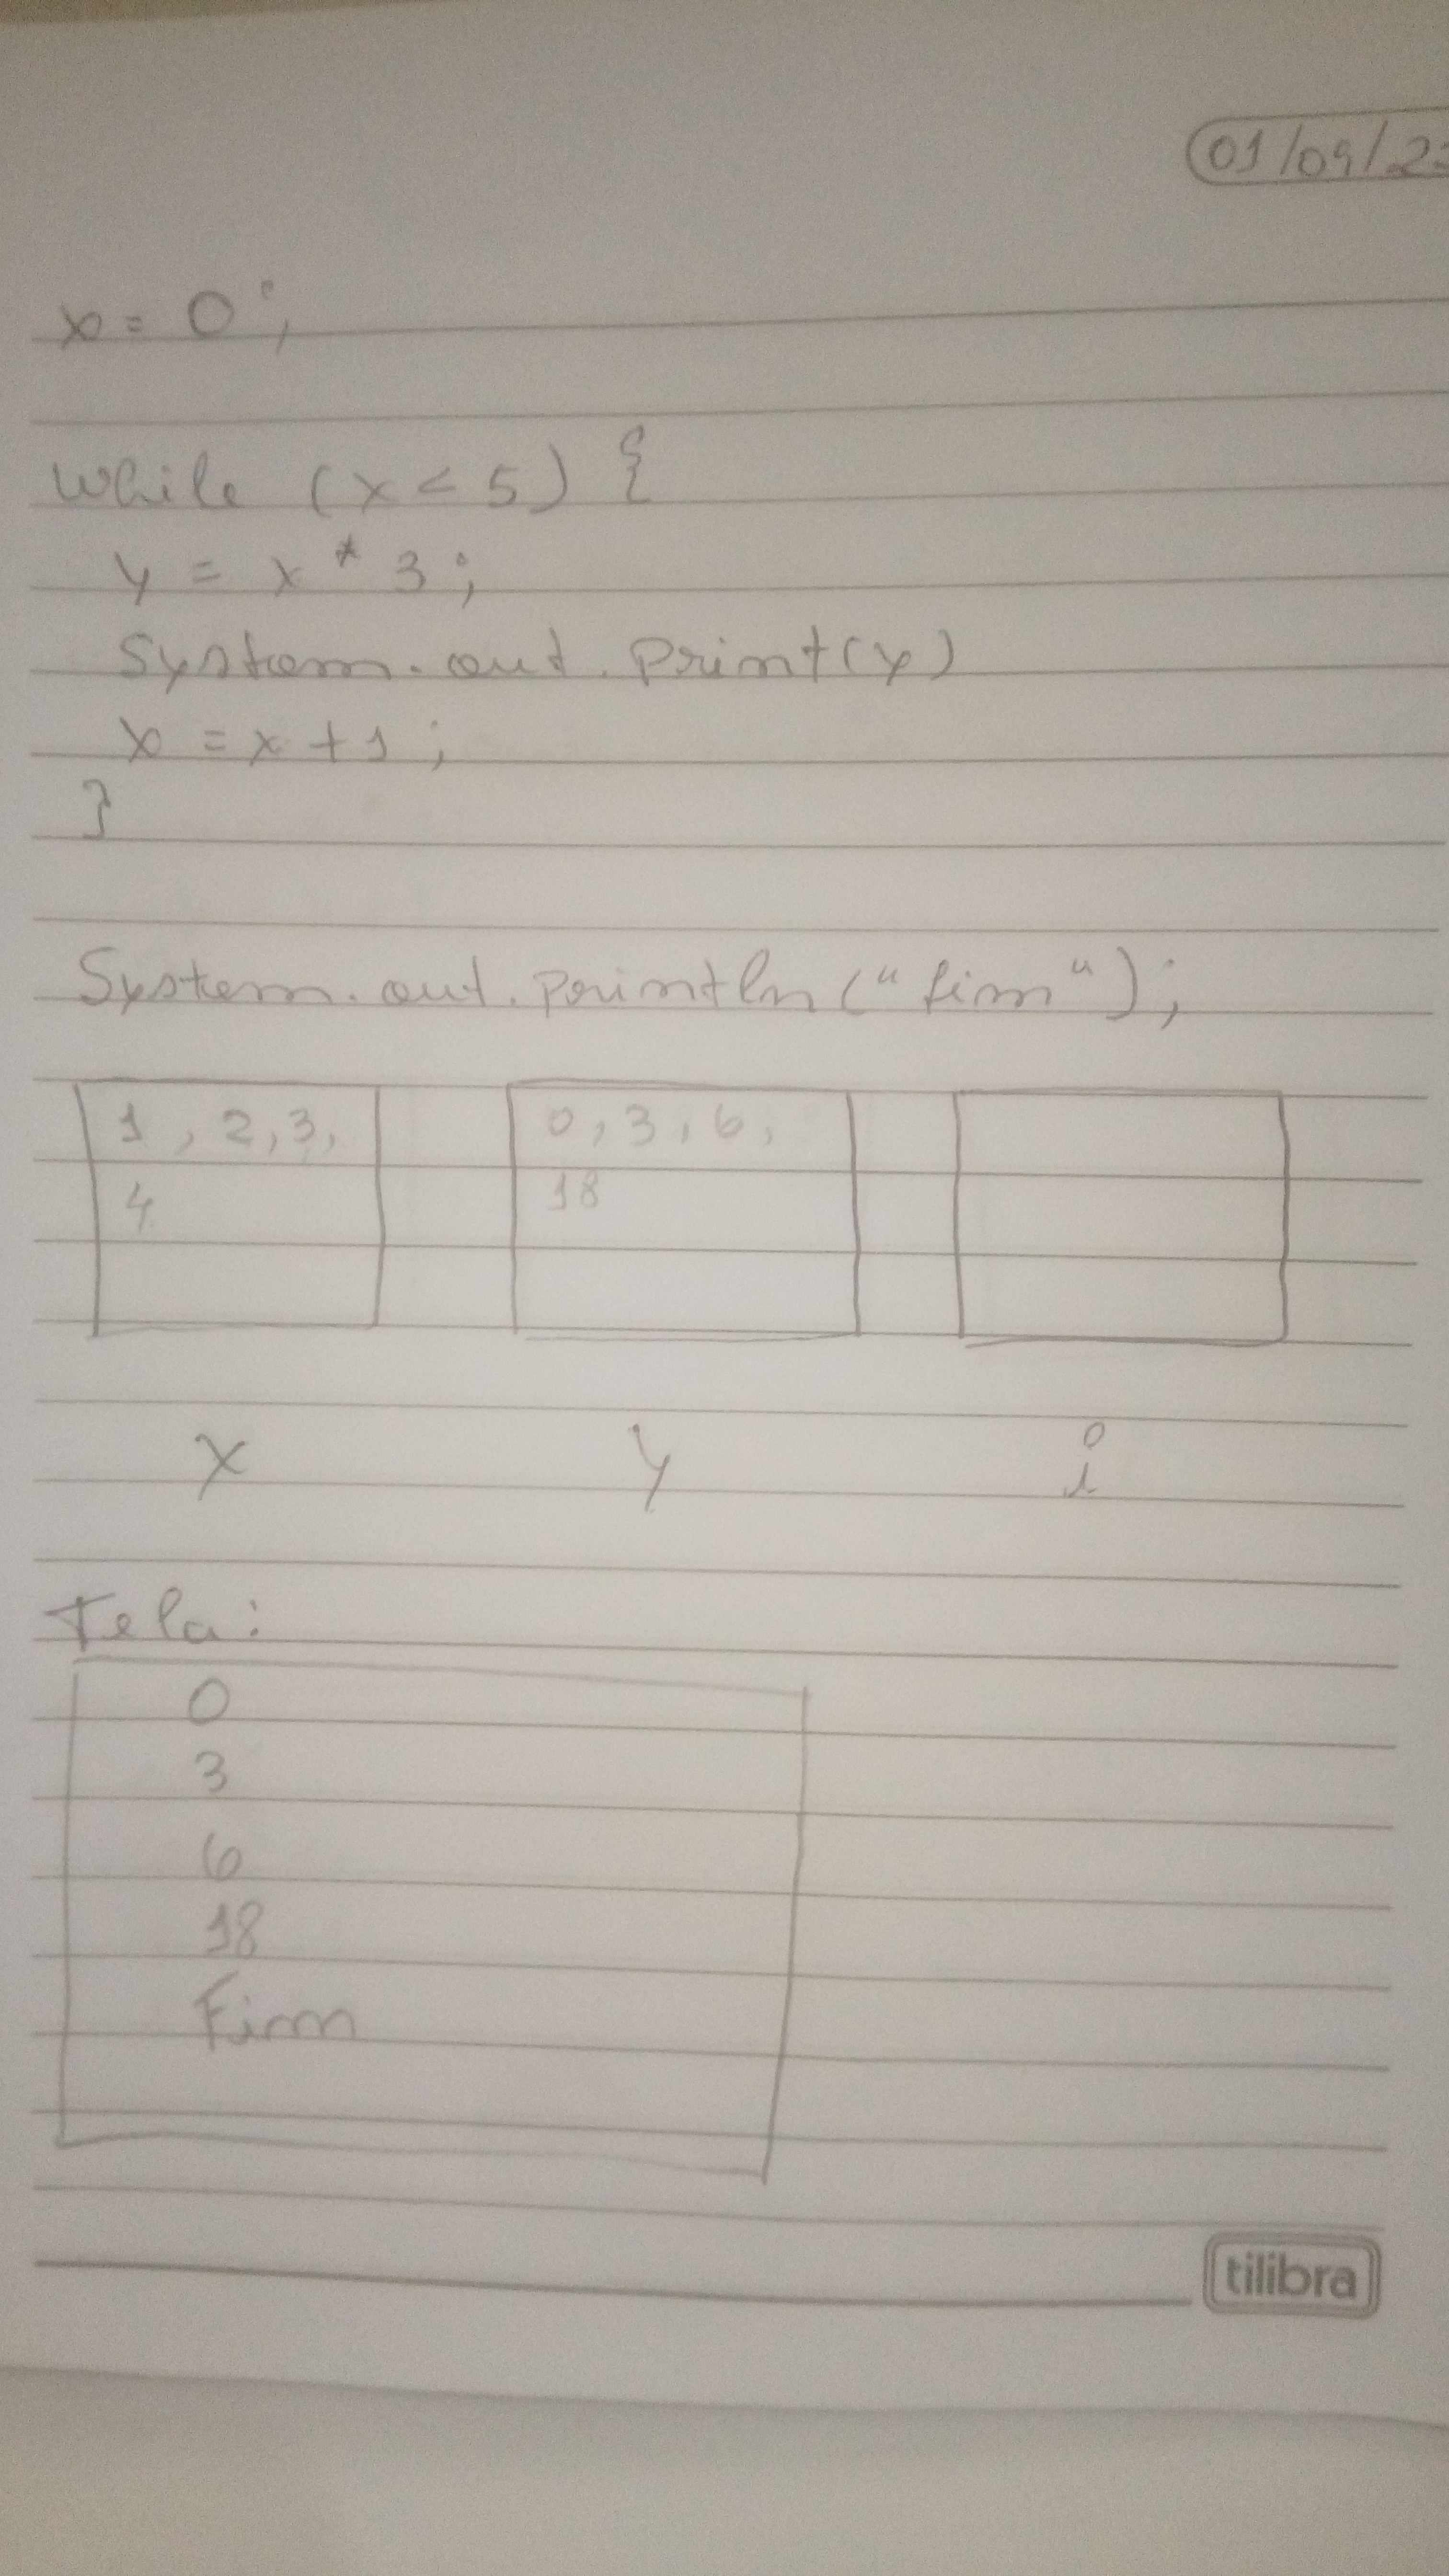 01/09/2
x = 0;
while (x < 5) {
y = x * 3;
System.out.print(y)
x = x + 1;
}
System.out.println("fim");
1, 2, 3, 0, 3, 6,
4 18
x y i
Tela:
0
3
6
18
Fim
tilibra